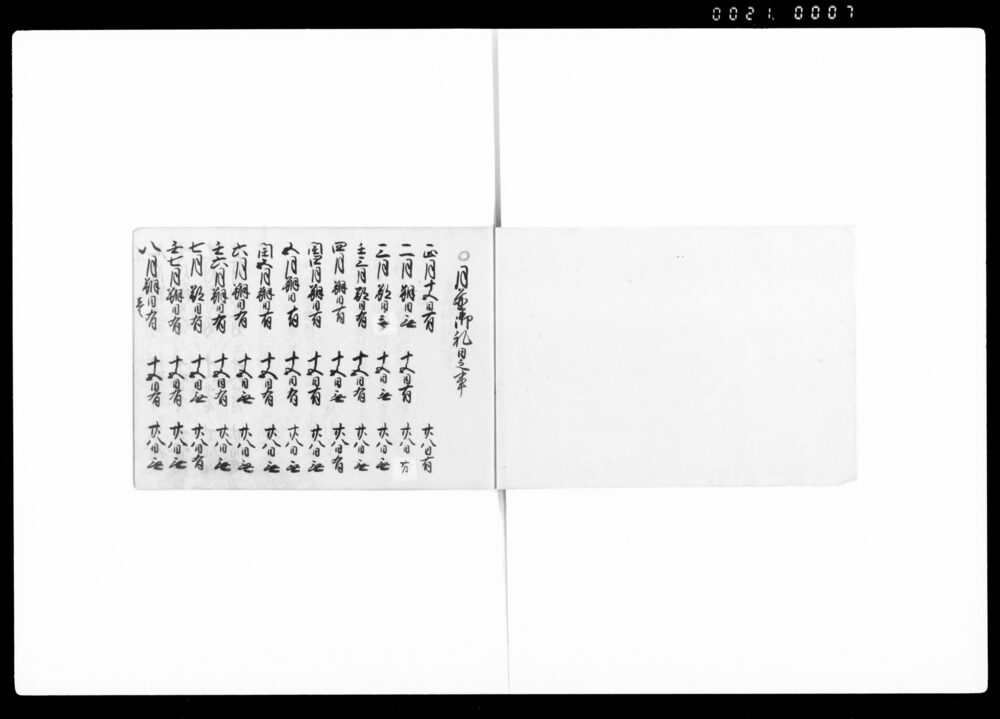 0021. 0007
○月並御礼日之事
正月十五日有 廿八日有
二月朔日無 十五日有 廿八日
三月朔日 十五日無 廿八日無
壬三月朔日有 十五日有 廿八日無
四月朔日有 十五日無 廿八日有
閏四月朔日有 十五日有 廿八日無
五月朔日有 十五日有 廿八日無
閏五月朔日有 十五日無 廿八日無
六月朔日有 十五日無 廿八日無
壬六月朔日有 十五日有 廿八日無
七月朔日有 十五日無 廿八日有
壬七月朔日有 十五日有 廿八日無
八月朔日有 十五日有 廿八日無